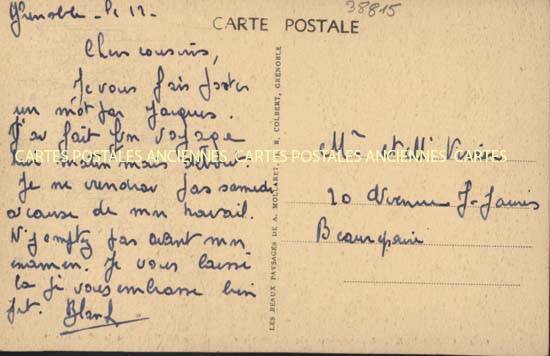 Grenoble - le 12 -
38815
CARTE POSTALE
Chers cousins,
Je vous fais passer
un mot par Jacques.
J'ai fait bon voyage
matin mais debout.
Je ne viendrai pas samedi
à cause de mon travail.
N'y comptez pas avant mon
examen. Je vous laisse
la je vous embrasse bien
fort.
CARTES POSTALES ANCIENNES CARTES POSTALES ANCIENNES
LES BEAUX PAYSAGES DE A. MOLLARET, R. COLBERT, GRENOBLE
Mr et Me
20 Avenue J-Jaurès
Beaurepaire